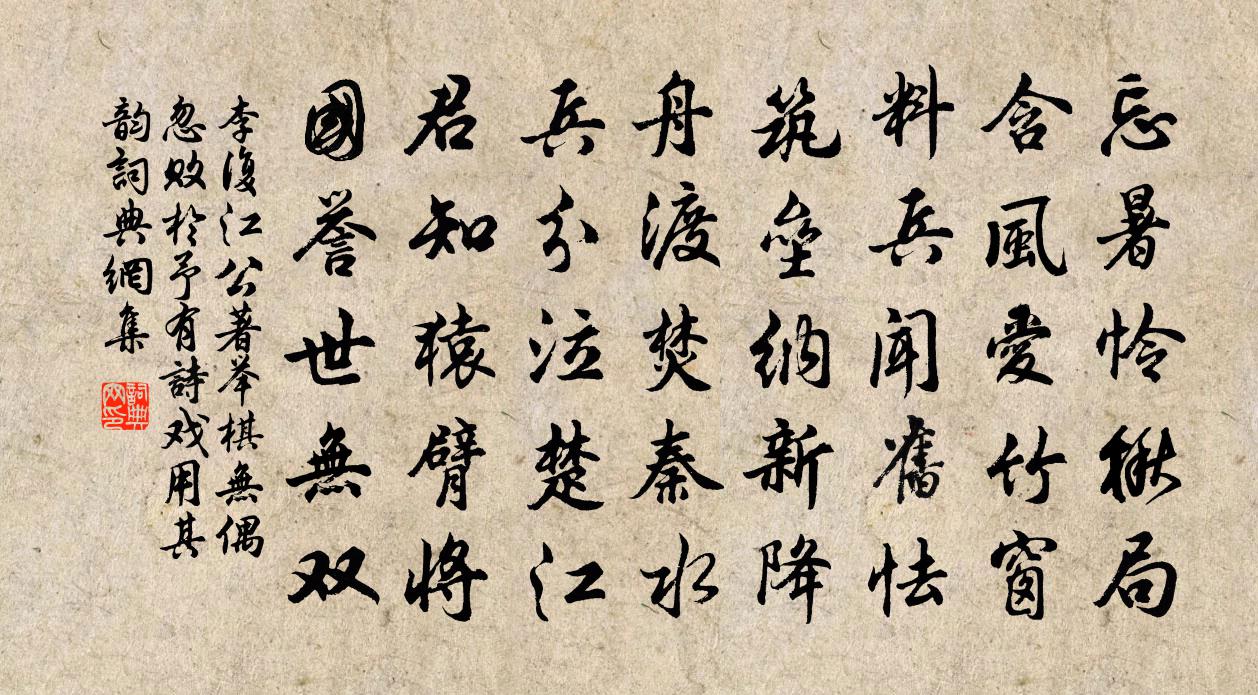 忘暑怜楸局
含風愛竹窗
料兵聞舊怯
筑壘納新降
舟渡焚秦水
兵分泣楚江
君知猿臂將
國譽世無双
李復江公著举棋無偶
忽败於予有詩戏用其
韵詞典網集
詞典网印